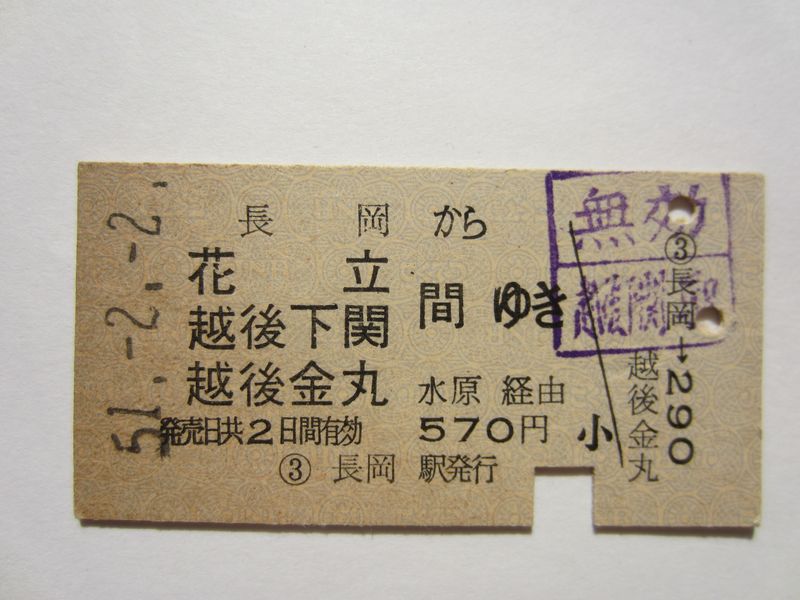 51.-2.-2.
長岡から
花立
越後下関
越後金丸
間ゆき
水原経由
発売日共2日間有効
570円
小
③長岡駅発行
無効
③長岡→290
越後金丸